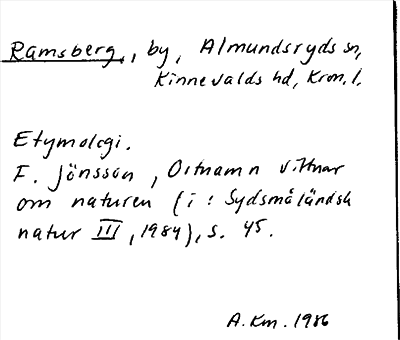 Ramsberg, by, Almundsryds sn,
Kinnevalds hd, Kron. l.
Etymologi.
F. Jönsson, Ortnamn vittnar
om naturen (i: Sydsmåländsk
natur III, 1984), s. 45.
A. Km. 1986